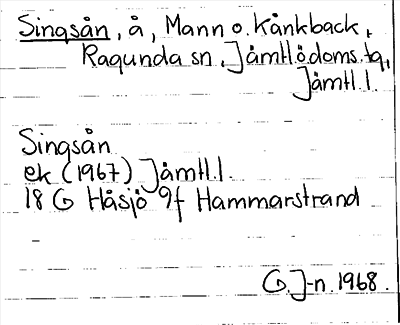 Singsån, å, Mann o. Kånkback,
Ragunda sn, Jämtl.ö.doms.tg,
Jämtl.l.
Singsån
ek (1967) Jämtl.l.
18 G Håsjö 9f Hammarstrand
G.J-n.1968.